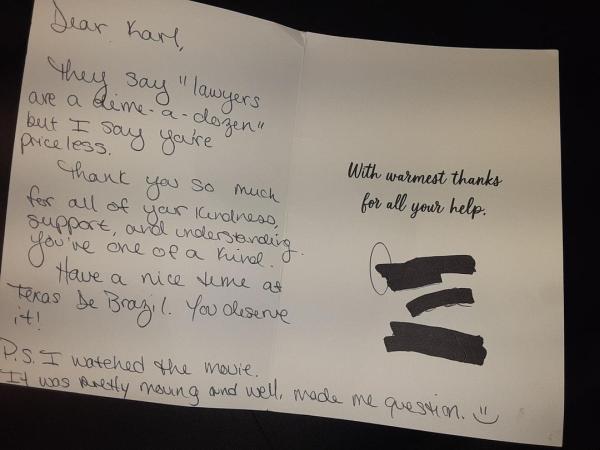 Dear Karl,
They say "lawyers
are a dime-a-dozen"
but I say you're
priceless.
Thank you so much
for all of your kindness,
support, and understanding.
You've one of a kind.
Have a nice time at
Texas De Brazil. You deserve
it!
P.S. I watched the movie.
It was pretty moving and well, made me question.
With warmest thanks
for all your help.